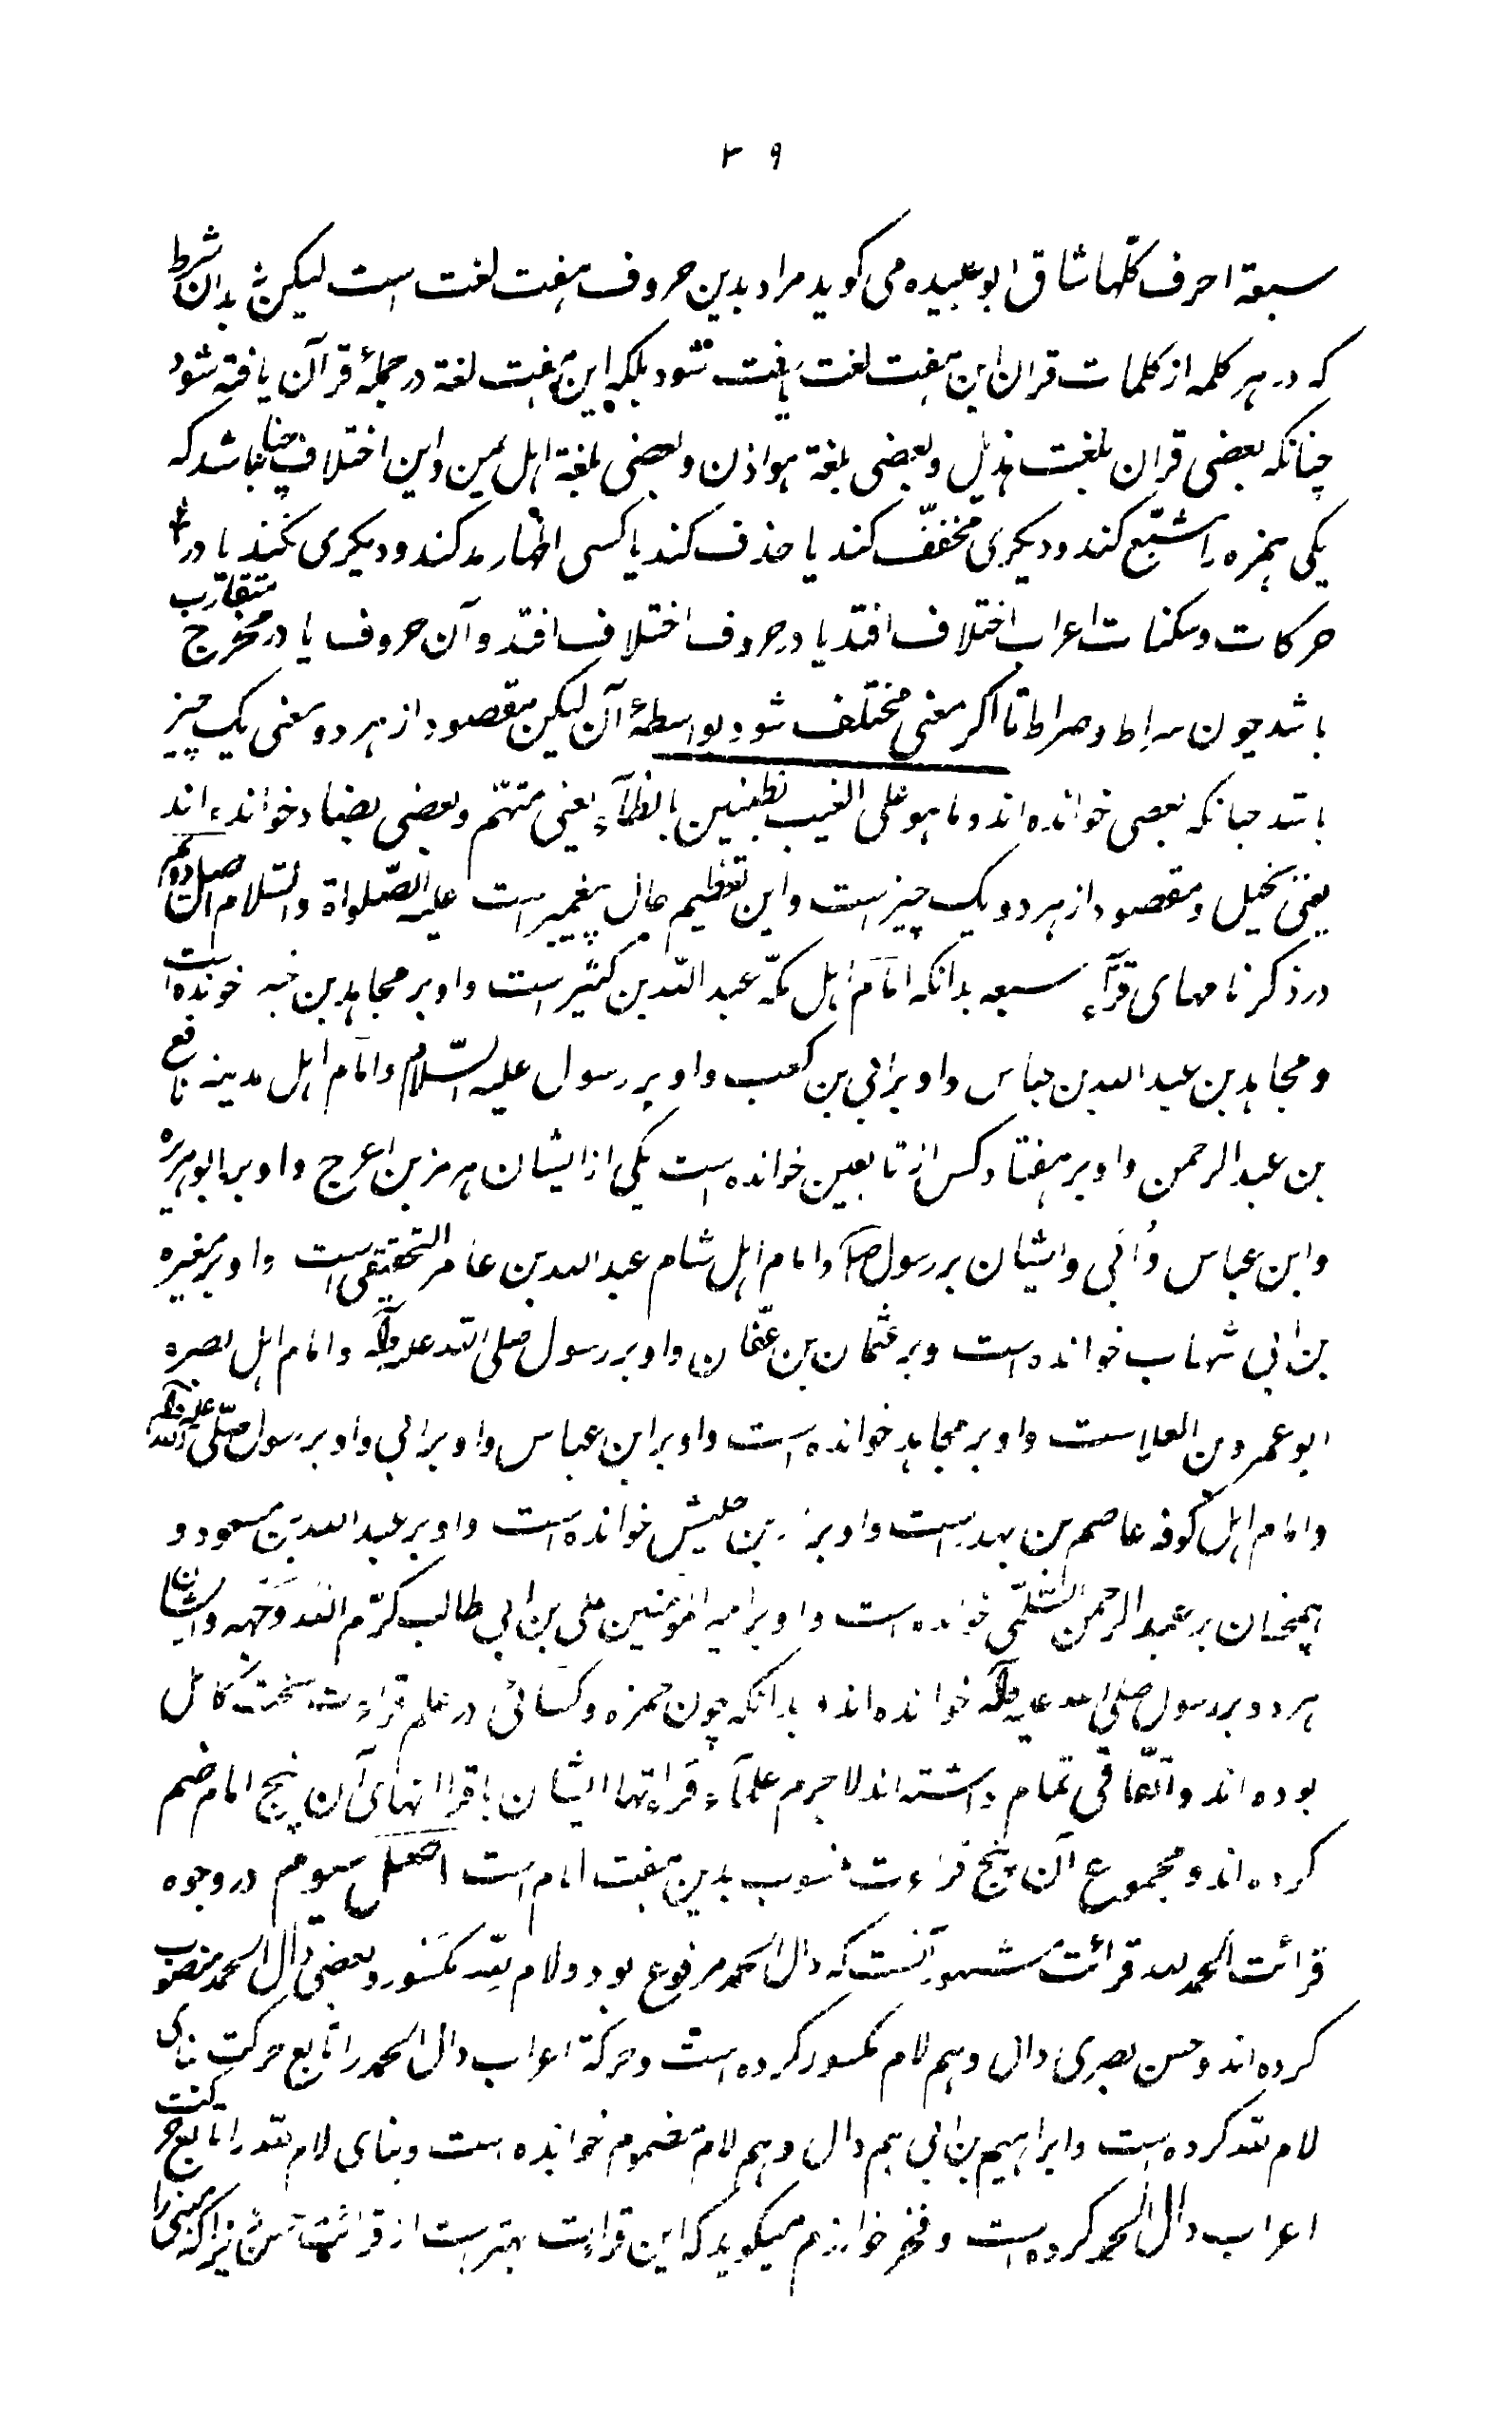 ۳۹
سبعة احرف كلّها شاف ابو عبیده می کوید مراد بدین حروف هفت لغت است لیکن نه بدان شرط
که در هر کلمه از کلمات قران این هفت لغت یافت شود بلکه این هفت لغة در جملۀ قرآن یافته شود
چنانکه بعضی قران بلغت هذیل و بعضی بلغة هوازن و بعضی بلغة اهل یمن و این اختلاف چنان باشد که
یکی همزه را مشبّع کند و دیکری مخفّف کند یا حذف کند یا کسی اظهار مد کند و دیکری نکند یا در
حرکات و سکنات اعراب اختلاف افتد یا در حروف اختلاف افتد و آن حروف یا در مخرج متقارب
باشد چون سراط و صراط تا اکر معنی مختلف شود بواسطۀ آن لیکن مقصود از هر دو معنی یک چیز
باشد چنانکه بعضی خوانده اند و ما هو علی الغیب بظنین بالظآء یعنی متهّم و بعضی بضاد خوانده اند
یعنی بخیل و مقصود از هر دو یک چیز است و این تعظیم حال پیغمبر است علیه الصّلواة و السّلام اصل دوم
در ذکر نامهای قرّآء سبعه بدانکه امام اهل مکّه عبد الله بن کثیر است و او بر مجاهد بن خوانده است
و مجاهد بن عبد الله بن عباس و او بر ابی بن کعب و او بر رسول علیه السّلام و امام اهل مدینه نافع
بن عبد الرحمن و او بر هفتاد کس از تابعین خوانده است یکی از ایشان هرمز بن اعرج و او بر ابو هریره
و ابن عباس و اُبی و ایشان بر رسول صلم و امام اهل شام عبد الله بن عامر التحقیقی است و او بر مغیره
بن ابی شهاب خوانده است و بر عثمان بن عفّان و او بر رسول صلی الله علیه وآله و امام اهل بصره
ابو عمرو بن العلاست و او بر مجاهد خوانده است و او بر ابن عباس و او بر ابی و او بر رسول صلّی الله علیه وآله
و امام اهل کوفه عاصم بن بهدست و او بر زر بن حلیش خوانده است و او بر عبد الله بن مسعود و
همچنان بر عبد الرحمن السّلّمی خوانده است و او بر امیر المؤمنین علی بن ابی طالب کرّم الله وجهه و ایشان
هر دو بر رسول صلی الله علیه وآله خوانده اند و بدانکه چون حمزه و کسائی در علم قراءت سخت کامل
بوده اند و اتّفاقی تمام داشته اند لاجرم علمآء قراءتها ایشان باقراءتهای آن پنج امام ضم
کرده اند و مجموع آن پنج قراءت منسوب بدین هفت امام است اصل سیوم در وجوه
قرائت الحمد لله قرائت مشهور آنست که دال الحمد مرفوع بود و لام لله مکسور و بعضی دال الحمد منصوب
کرده اند و حسن بصری دال و هم لام مکسور کرده است و حرکة اعراب دال الحمد را تابع حرکت بنای
لام لله کرده است و ابراهیم بن ابی هم دال و هم لام مضموم خوانده است و بنای لام لله را تابع حرکت
اعراب دال الحمد کرده است و فخر خوارزم میکوید که این قراءت بهتر است از قرائت حسن زیرا که مبنی را